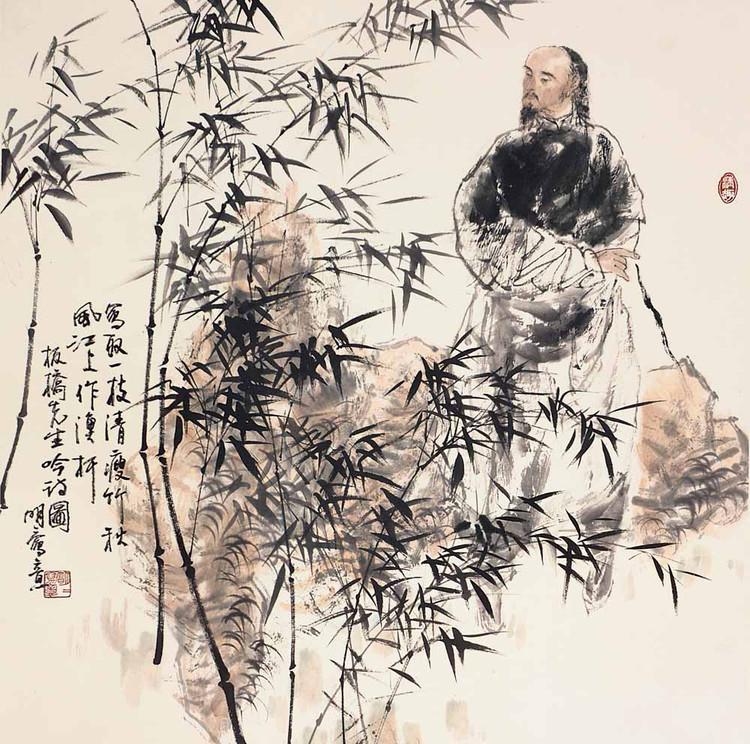 寫取一枝清瘦竹秋
風江上作漁杆
板橋先生吟詩圖
明